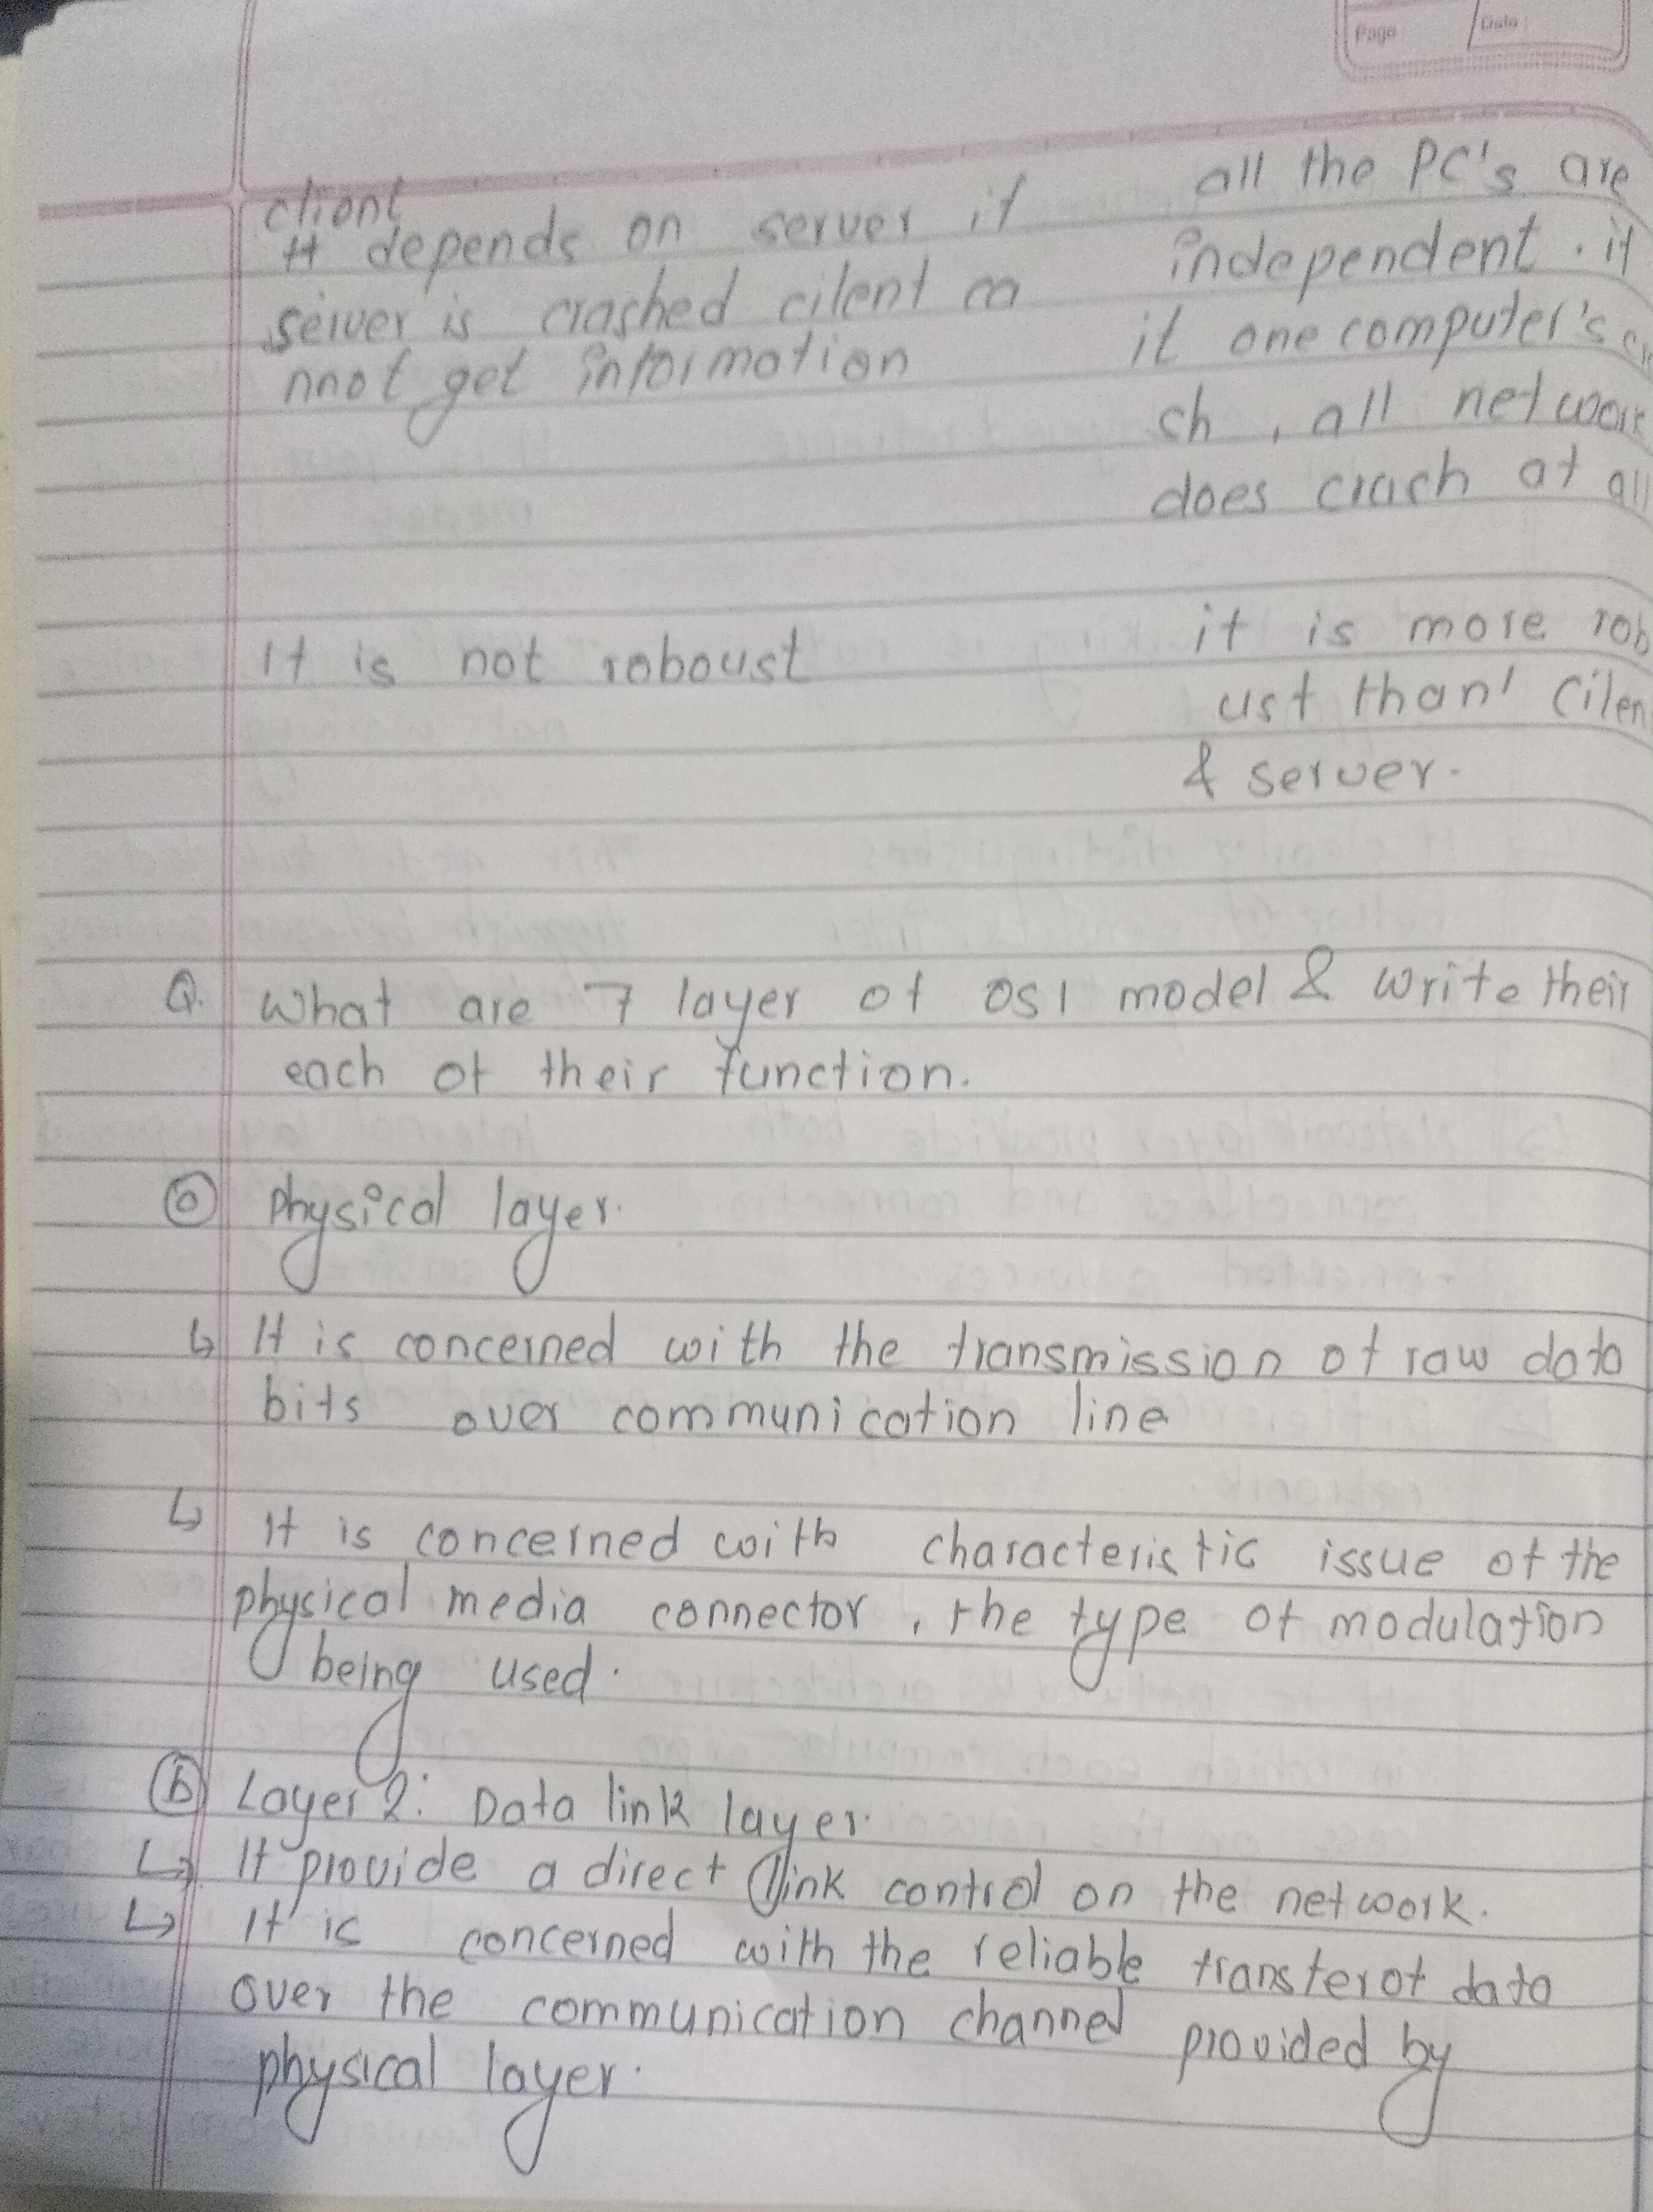 Page Date
client
It depends on server if
server is crashed cilent ca
nnot get information
all the PC's are
independent. if
if one computer's
ch, all network
does crach at all
It is not roboust
it is more rob
ust than cilen
& server.
Q. What are 7 layer of OSI model & write their
each of their function.
a physical layer.
↳ It is concerned with the transmission of raw data
bits over communication line
↳ It is concerned with characteristic issue of the
physical media connector, the type of modulation
being used.
b Layer 2: Data link layer.
↳ It provide a direct link control on the network.
↳ It is concerned with the reliable transfer of data
over the communication channel provided by
physical layer.